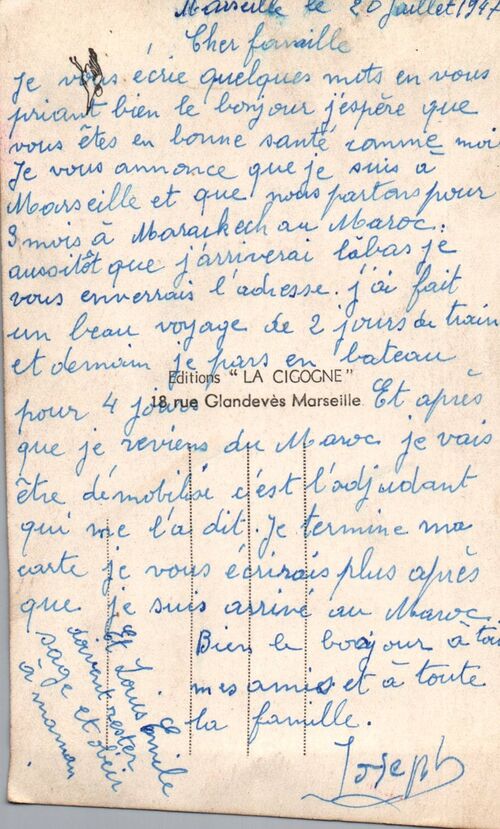 Marseille le 20 Juillet 1947
Cher famille
Je vous écrie quelques mots en vous
priant bien le bonjour j'espère que
vous êtes en bonne santé comme moi
Je vous annonce que je suis à
Marseille et que nous partons pour
3 mois à Maraikech au Maroc.
aussitôt que j'arriverai làbas je
vous enverrais l'adresse. j'ai fait
un beau voyage de 2 jours de train
et demain je pars en bateau
Editions "LA CIGOGNE"
18 rue Glandevès Marseille
pour 4 jours Et après
que je reviens du Maroc je vais
être démobilisé c'est l'adjudant
qui me l'a dit. Je termine ma
carte je vous écrirais plus après
que je suis arrivé au Maroc.
Bien le bonjour à tous
mes amis et à toute
la famille.
Joseph
Et Louis Emile
doivent rester
sage et obéir
à maman